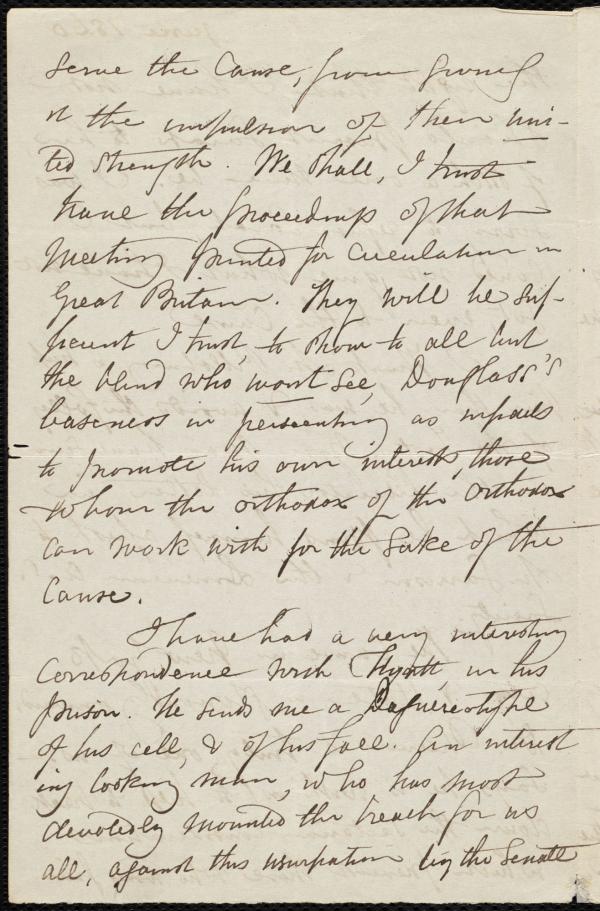 serve the Cause, from giving
it the impulsion of their uni-
ted strength. We shall, I trust
have the proceedings of that
Meeting printed for circulation in
Great Britain. They will be suf-
ficient I trust, to show to all but
the blind who wont see, Douglass's
baseness in persecuting as infidels
to promote his own interests, those
whom the orthodox of the orthodox
can work with for the sake of the
Cause.
I have had a very interesting
correspondence with Hyatt, in his
prison. He sends me a Daguereotype
of his cell, & of his face. An interest
ing looking man, who has most
devotedly mounted the breach for us
all, against this usurpation by the Senate